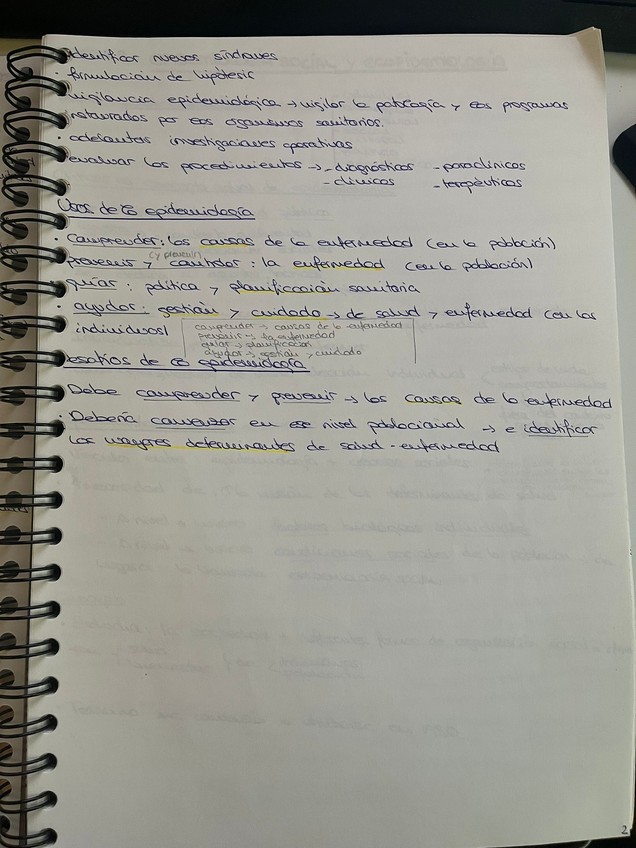 identificar nuevos síndromes
· formulación de hipótesis
vigilancia epidemiológica → vigilar la patología y los programas
instaurados por los organismos sanitarios.
· adelantar investigaciones operativas
evaluar los procedimientos → - diagnósticos - paraclínicos
- clínicos - terapéuticos
Usos de la epidemiología
· Comprender: las causas de la enfermedad (en la población)
(y prevenir)
prevenir y controlar: la enfermedad (en la población)
· guiar: política y planificación sanitaria
· ayudar: gestión y cuidado → de salud y enfermedad con los
individuos
comprender → causas de la enfermedad
prevenir → la enfermedad
guiar → planificación
ayudar → gestión y cuidado
Desafíos de la epidemiología
Debe comprender y prevenir → las causas de la enfermedad
· Debería comenzar en ese nivel poblacional → e identificar
los mayores determinantes de salud - enfermedad
2